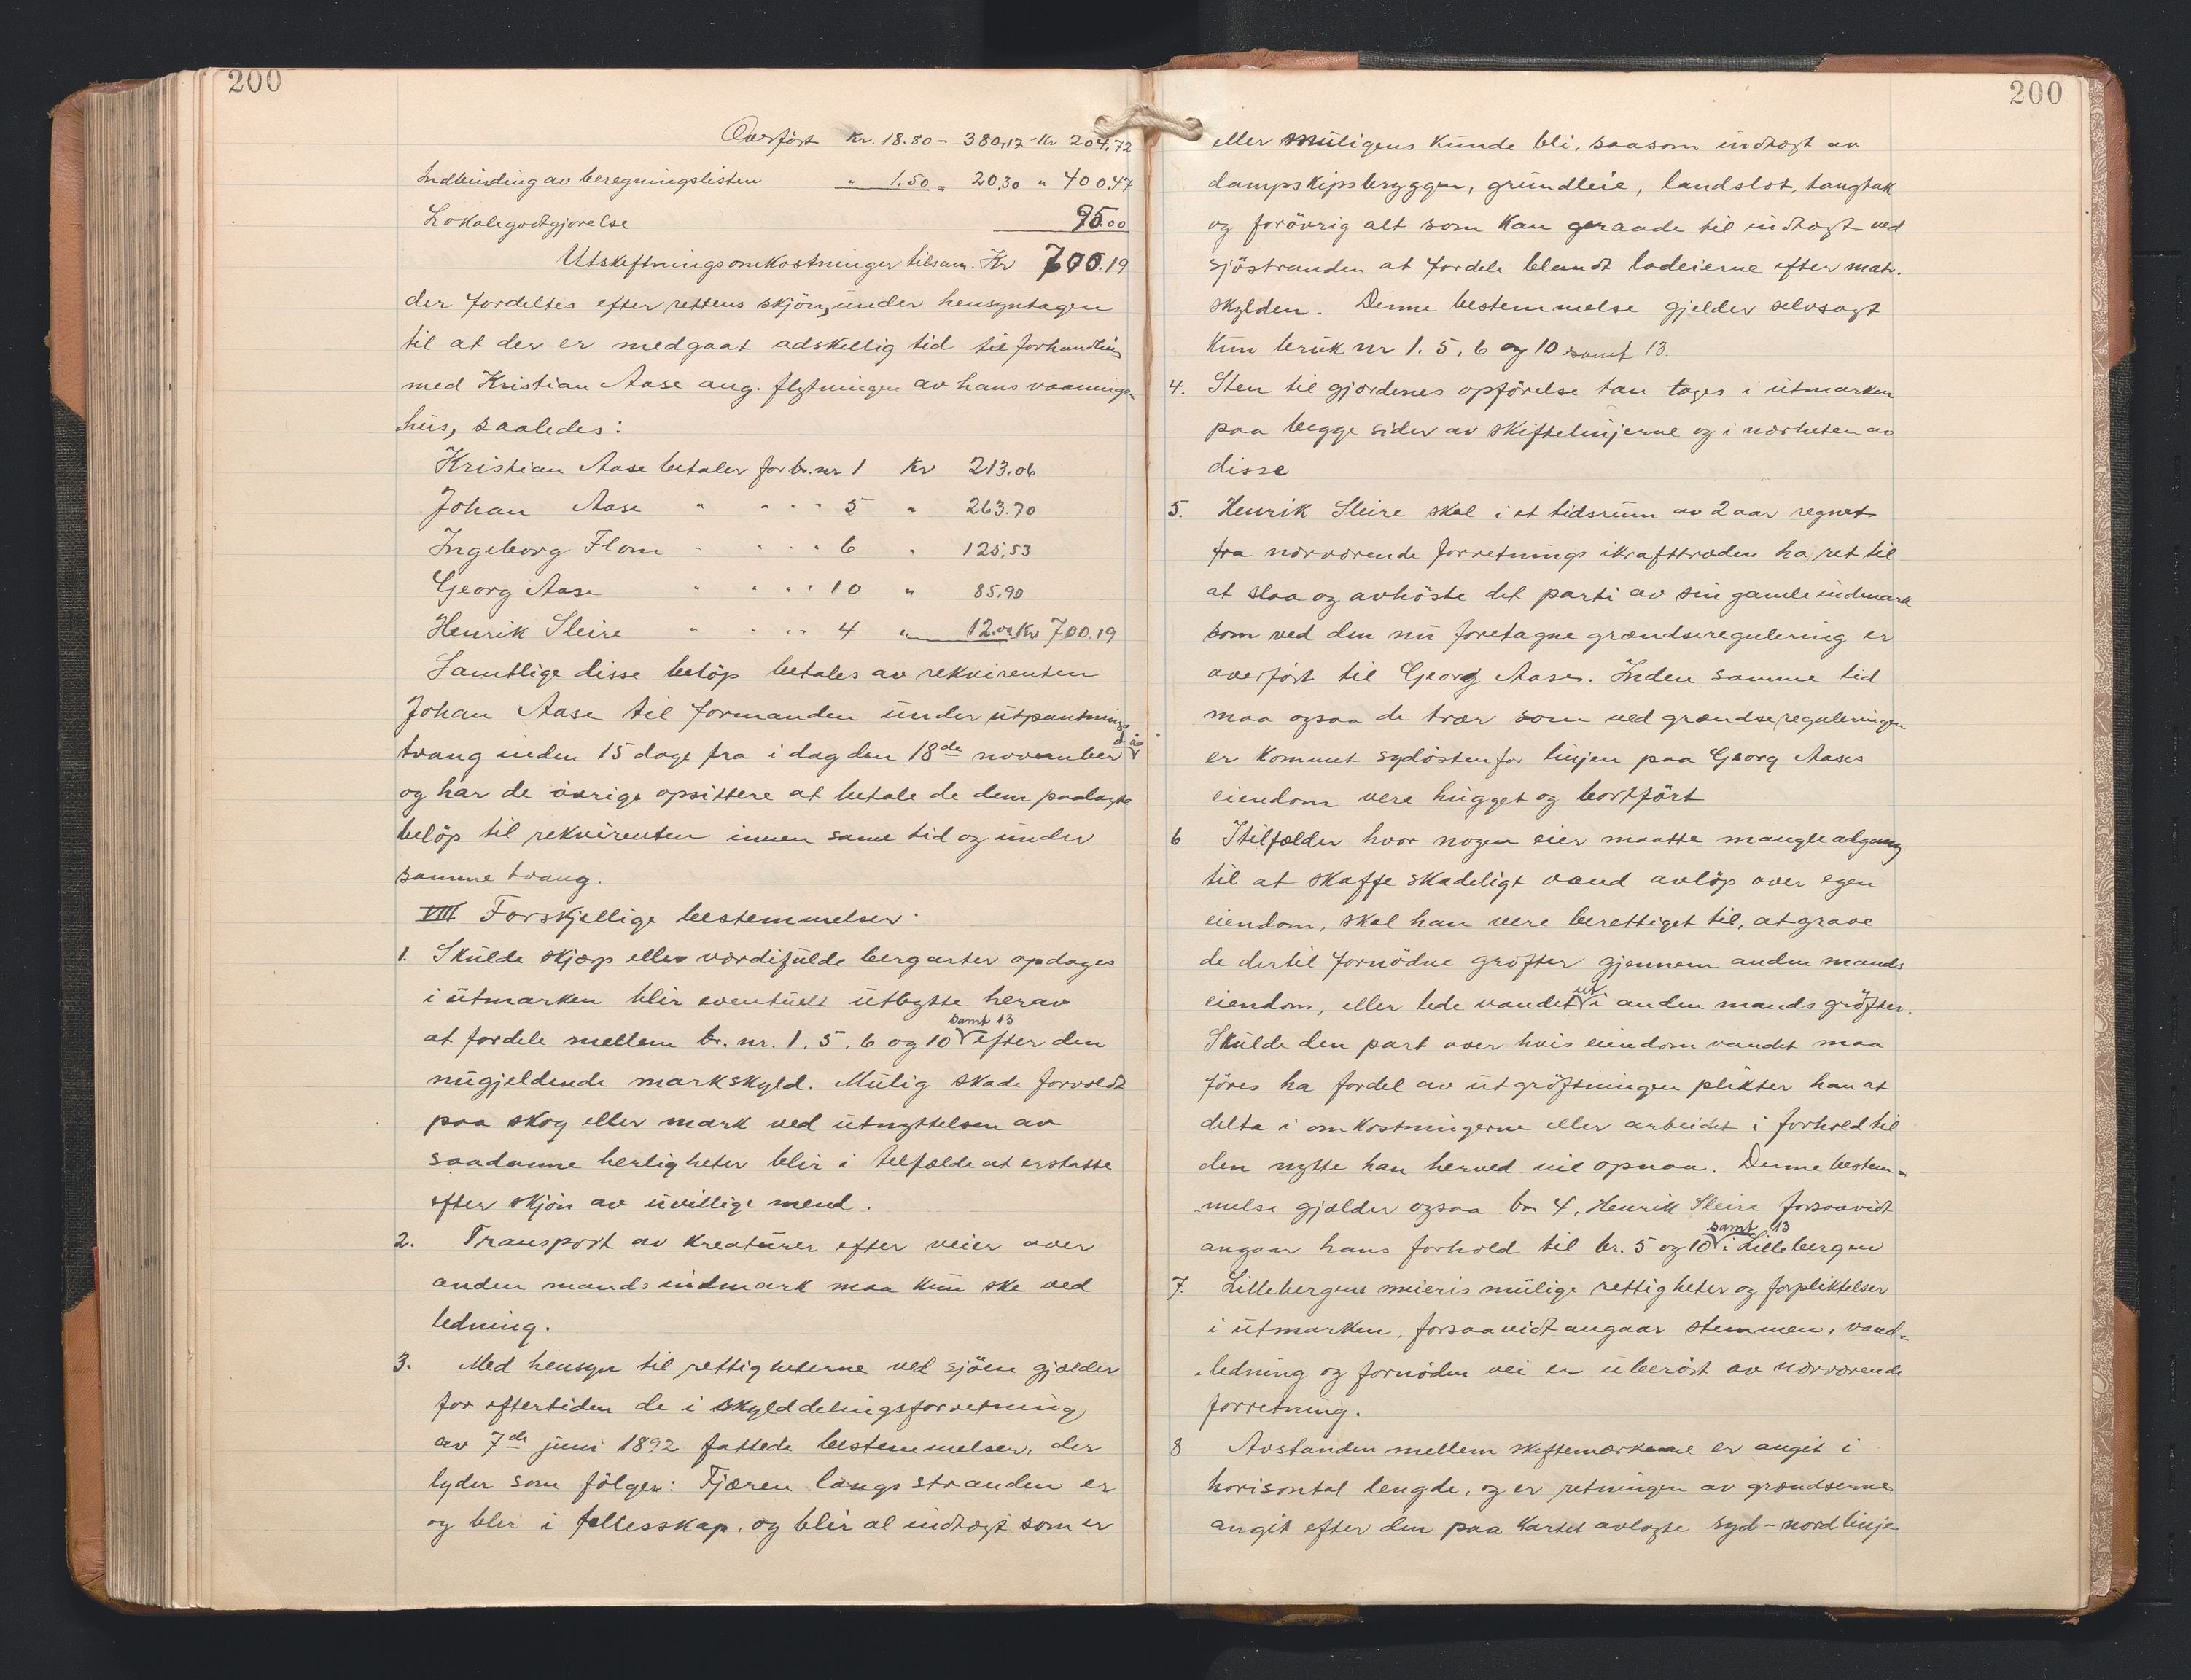 200
Overført Kr. 18.80 – 380,17 Kr 204.72
Indbinding av beregningslisten " 1.50 " 20,30 " 400.47
Lokalegodtgjørelse 95.00
Utskiftningsomkostninger tilsam. Kr 700.19
der fordeltes efter rettens skjøn, under hensyntagen
til at der er medgaat adskillig tid til forhandling
med Kristian Aase ang. flytningen av hans vaanings-
hus, saaledes:
Kristian Aase betaler for br. nr 1 Kr 213.06
Johan Aase " " " " 5 " 263.70
Ingeborg Flom " " " " 6 " 125.53
Georg Aase " " " " 10 " 85.90
Henrik Sleire " " " " 4 " 12.00 Kr 700.19
Samtlige disse beløp betales av rekvirenten
Johan Aase til formanden under utpantnings
tvang inden 15 dage fra i dag den 18de november d.å.
og har de øvrige opsittere at betale de dem paalagte
beløp til rekvirenten innen same tid og under
samme tvang.
VIII Forskjellige bestemmelser.
1. Skulde skjærp eller værdifulde bergarter opdages
i utmarken blir eventuelt utbytte herav
at fordele mellem br. nr. 1. 5. 6 og 10 samt 13 efter den
nugjeldende markskyld. Mulig skade forvoldt
paa skog eller mark ved utnyttelsen av
saadanne herligheter blir i tilfælde at erstatte
efter skjøn av uvillige mend.
2. Transport av kreaturer efter veier over
anden mands indmark maa kun ske ved
ledning.
3. Med hensyn til rettigheterne ved sjøen gjælder
for eftertiden de i skylddelingsforretning
av 7de juni 1892 fattede bestemmelser, der
lyder som følger: Fjæren langs stranden er
og blir i fellesskap, og blir al indtægt som er
200
eller muligens kunde bli, saasom indtægt av
dampskipsbryggen, grundleie, landslot, tangtak
og forøvrig alt som kan geraade til indtægt ved
sjøstranden at fordele blandt lodeierne efter matr.
skylden. Denne bestemmelse gjelder selvsagt
kun bruk nr 1. 5. 6 og 10 samt 13.
4. Sten til gjærdenes opførelse kan tages i utmarken
paa begge sider av skiftelinjerne og i nærheten av
disse
5. Henrik Sleire skal i et tidsrum av 2 aar regnet
fra nærværende forretnings ikrafttræden ha ret til
at slaa og avhøste det parti av sin gamle indmark
som ved den nu foretagne grændseregulering er
overført til Georg Aase. Inden samme tid
maa ogsaa de trær som ved grændsereguleringen
er kommet sydøstenfor linjen paa Georg Aases
eiendom vere hugget og bortført
6 I tilfælder hvor nogen eier maatte mangle adgang
til at skaffe skadeligt vand avløp over egen
eiendom, skal han vere berettiget til, at grave
de dertil fornødne grøfter gjennem anden mands
eiendom, eller lede vandet ut i anden mands grøfter.
Skulde den part over hvis eiendom vandet maa
føres ha fordel av utgrøftningen plikter han at
delta i omkostningerne eller arbeidet i forhold til
den nytte han herved vil opnaa. Denne bestem-
melse gjælder ogsaa br. 4, Henrik Sleire forsaavidt
angaar hans forhold til br. 5 og 10 samt 13 i Lillebergen
7. Lillebergens meieris mulige rettigheter og forpliktelser
i utmarken, forsaavidt angaar stemmen, vand-
ledning og fornøden vei er uberørt av nærværende
forretning.
8 Avstanden mellem skiftemærkerne er angit i
horisontal lengde, og er retningen av grændserne
angit efter den paa kartet avlagte syd-nord linje